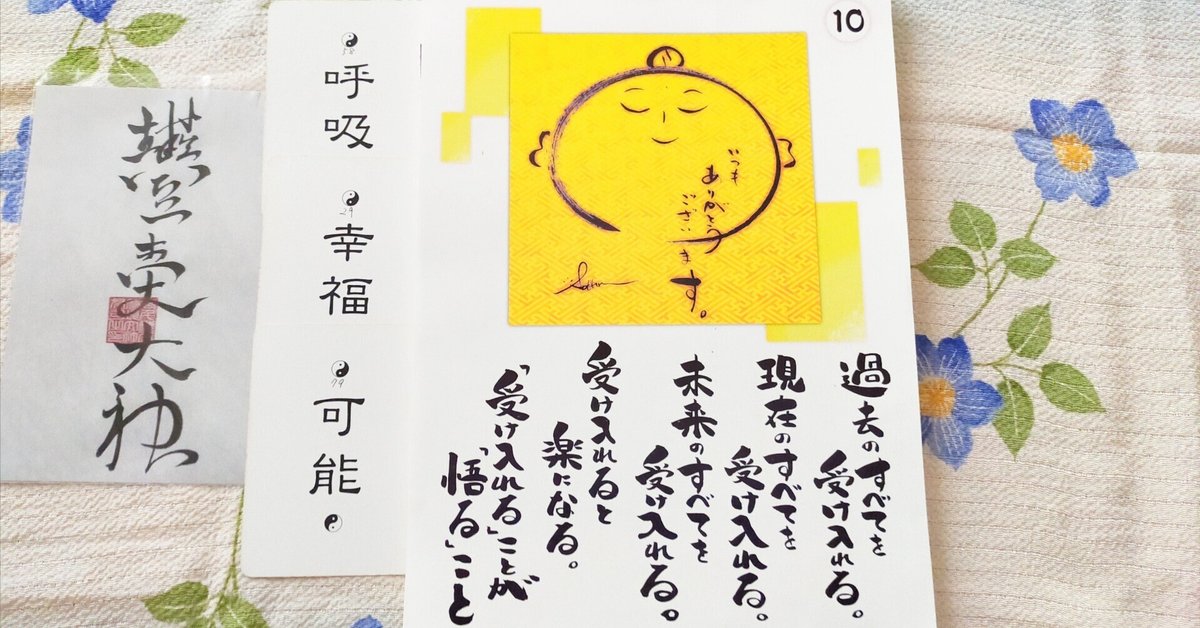 10
いつも
ありがとう
ございます。
過去のすべてを
受け入れる。
現在のすべてを
受け入れる。
未来のすべてを
受け入れる。
受け入れると
楽になる。
「受け入れる」ことが
「悟る」こと
呼吸
29
幸福
79
可能
大神